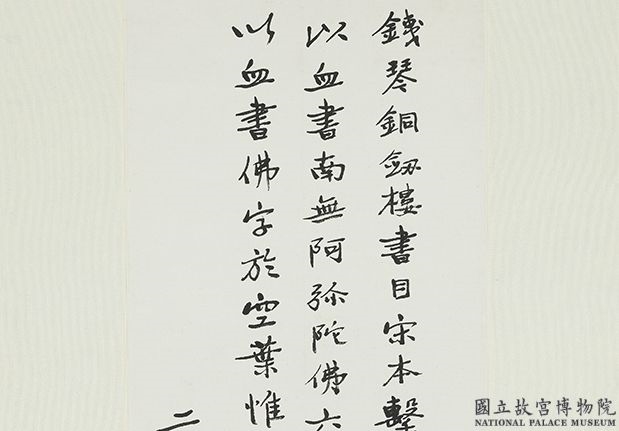 銕琴銅劔樓書目宋本擊
以血書南無阿弥陀佛六
以血書佛字於空葉惟
二
國立故宮博物院
NATIONAL PALACE MUSEUM